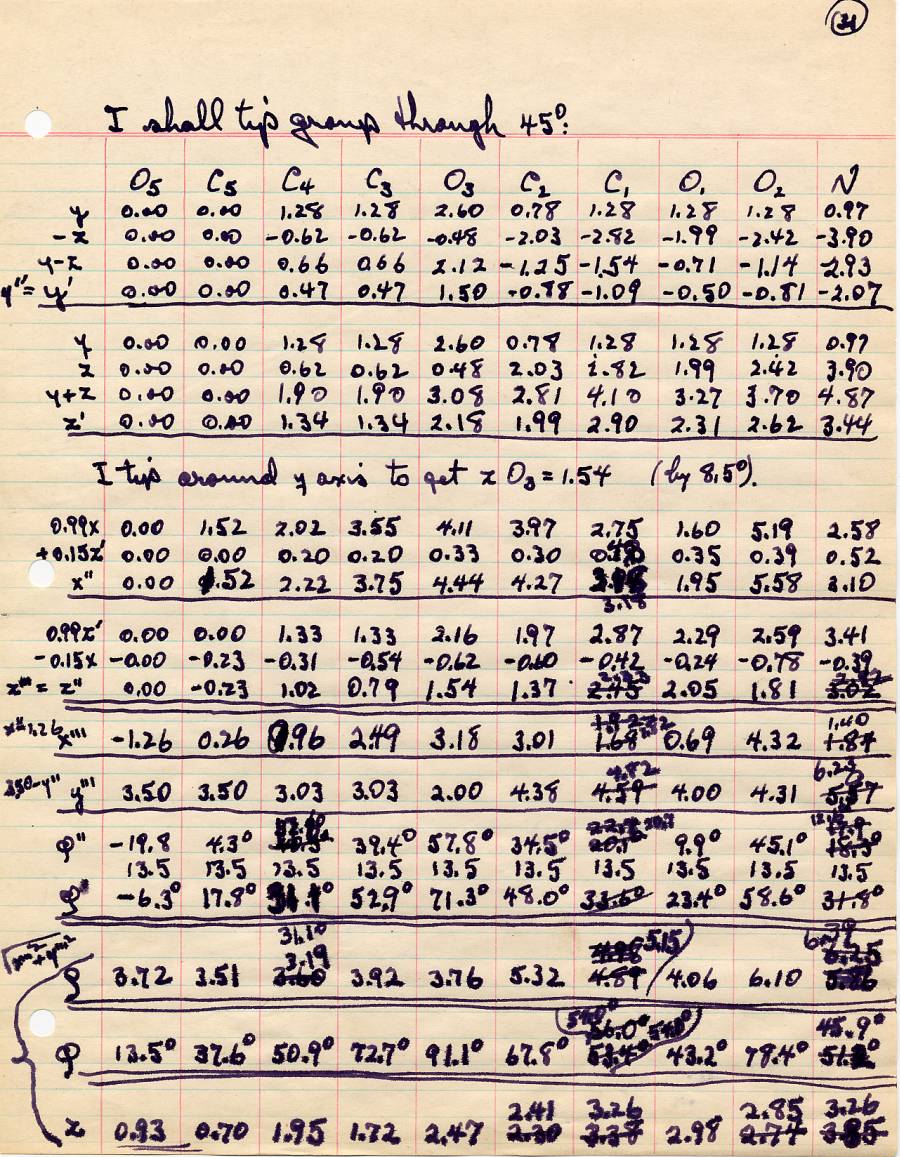 31
I shall tip group through 45°:
O5 C5 C4 C3 O3 C2 C1 O1 O2 N
y 0.00 0.00 1.28 1.28 2.60 0.78 1.28 1.28 1.28 0.97
-z 0.00 0.00 -0.62 -0.62 -0.48 -2.03 -2.82 -1.99 -2.42 -3.90
y-z 0.00 0.00 0.66 0.66 2.12 -1.25 -1.54 -0.71 -1.14 -2.93
y''=y' 0.00 0.00 0.47 0.47 1.50 -0.88 -1.09 -0.50 -0.81 -2.07
y 0.00 0.00 1.28 1.28 2.60 0.78 1.28 1.28 1.28 0.97
z 0.00 0.00 0.62 0.62 0.48 2.03 2.82 1.99 2.42 3.90
y+z 0.00 0.00 1.90 1.90 3.08 2.81 4.10 3.27 3.70 4.87
z' 0.00 0.00 1.34 1.34 2.18 1.99 2.90 2.31 2.62 3.44
I tip around y axis to get z O3 = 1.54 (by 8.5°).
0.99x 0.00 1.52 2.02 3.55 4.11 3.97 2.75 1.60 5.19 2.58
+0.15z' 0.00 0.00 0.20 0.20 0.33 0.30 0.35 0.39 0.52
x'' 0.00 1.52 2.22 3.75 4.44 4.27 1.95 5.58 3.10
3.18
0.99z' 0.00 0.00 1.33 1.33 2.16 1.97 2.87 2.29 2.59 3.41
-0.15x -0.00 -0.23 -0.31 -0.54 -0.62 -0.60 -0.42 -0.24 -0.78 -0.39
z''' = z'' 0.00 -0.23 1.02 0.79 1.54 1.37 2.45 2.05 1.81 3.02
1.40
x''-1.26 x''' -1.26 0.26 0.96 2.49 3.18 3.01 1.68 0.69 4.32 1.84
4.82 6.23
3.50-y'' y''' 3.50 3.50 3.03 3.03 2.00 4.38 4.59 4.00 4.31 5.57
φ'' -19.8 4.3° 39.4° 57.8° 34.5° 9.9° 45.1° 18.3°
13.5 13.5 13.5 13.5 13.5 13.5 13.5 13.5 13.5 13.5
φ -6.3° 17.8° 31.1° 52.9° 71.3° 48.0° 33.6° 23.4° 58.6° 31.8°
31.1° 5.15 6.39
3.19 6.25
ρ 3.72 3.51 3.92 3.76 5.32 4.89 4.06 6.10
54.0° 56.0° 54.0° 45.9°
φ 13.5° 37.6° 50.9° 72.7° 91.1° 67.8° 53.4° 43.2° 78.4°
2.41 3.26 2.85 3.26
z 0.93 0.70 1.95 1.72 2.47 2.30 3.38 2.98 2.74